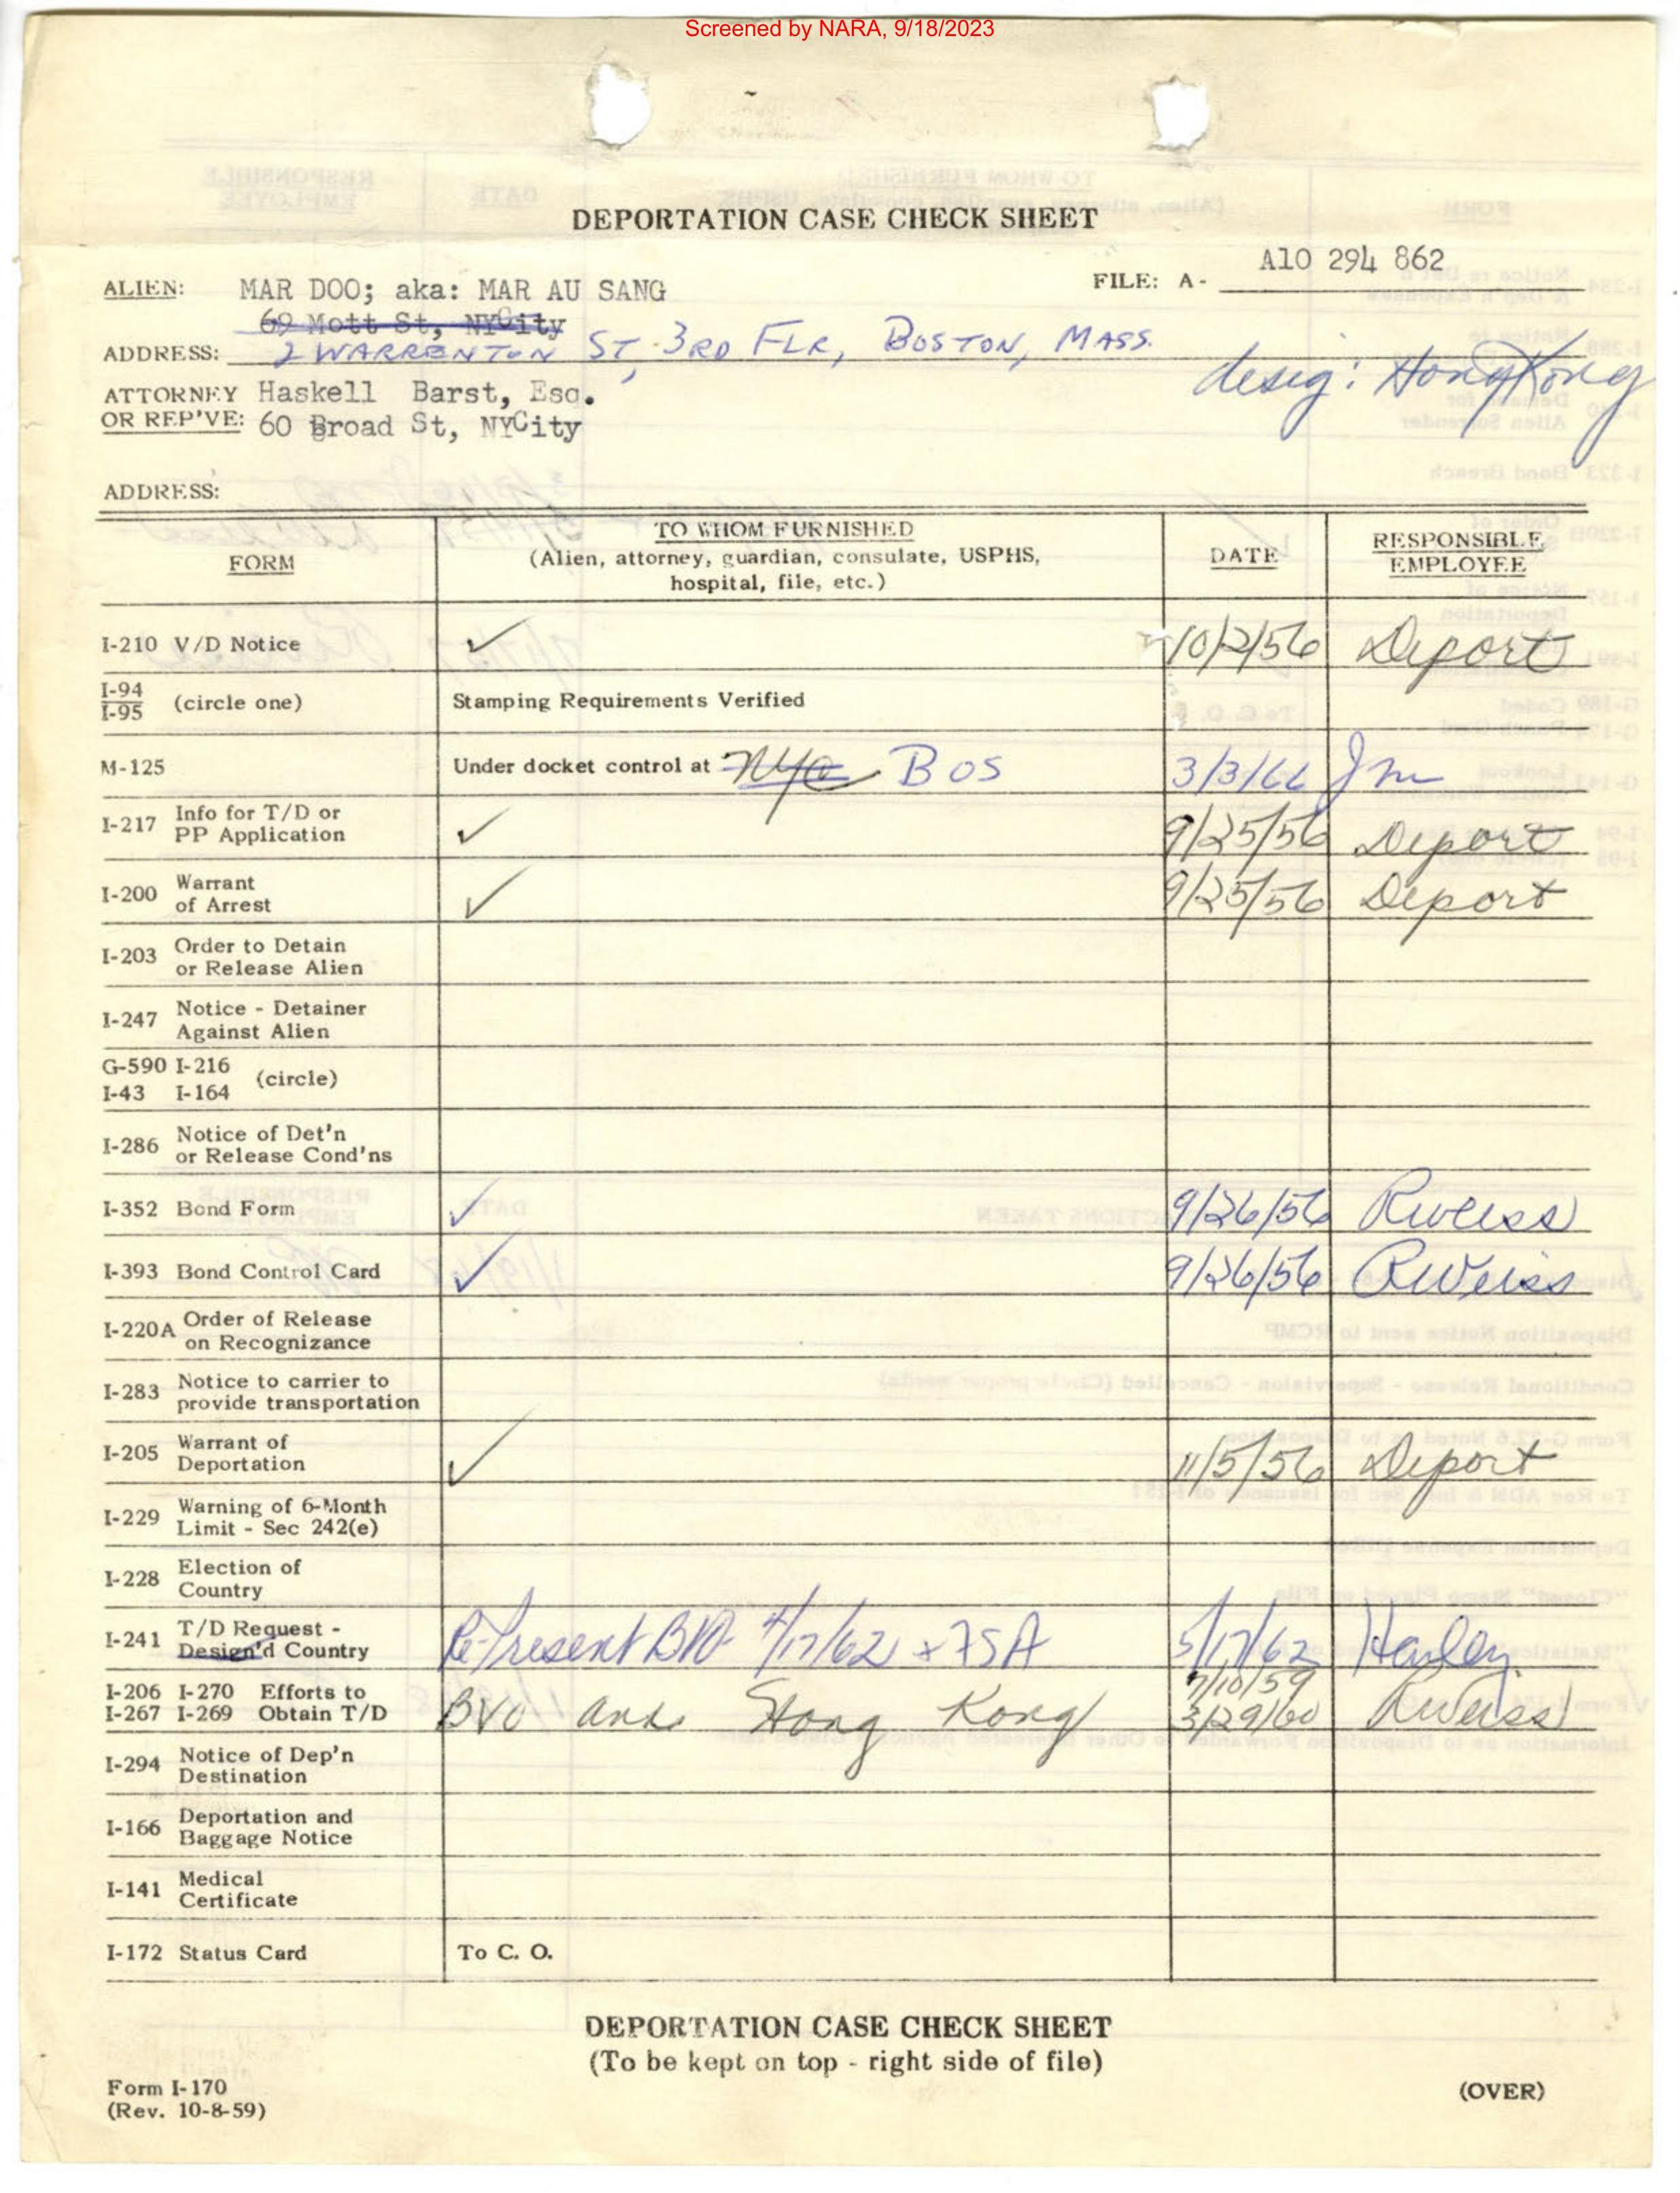 Screened by NARA, 9/18/2023
DEPORTATION CASE CHECK SHEET
FILE: A- A10 294 862
ALIEN: MAR DOO; aka: MAR AU SANG
69 Mott St, NYCity
ADDRESS: 2 WARRENTON ST, 3RD FLR, BOSTON, MASS.
desig: Hong Kong
ATTORNEY Haskell Barst, Esq.
OR REP'VE: 60 Broad St, NYCity
ADDRESS:
FORM
TO WHOM FURNISHED
(Alien, attorney, guardian, consulate, USPHS,
hospital, file, etc.)
DATE
RESPONSIBLE
EMPLOYEE
I-210 V/D Notice ✓ 10/2/56 Deport
I-94
I-95 (circle one) Stamping Requirements Verified
M-125 Under docket control at NYC BOS 3/3/66 Jm
I-217 Info for T/D or
PP Application ✓ 9/25/56 Deport
I-200 Warrant
of Arrest ✓ 9/25/56 Deport
I-203 Order to Detain
or Release Alien
I-247 Notice - Detainer
Against Alien
G-590 I-216
I-43 I-164 (circle)
I-286 Notice of Det'n
or Release Cond'ns
I-352 Bond Form ✓ 9/26/56 RWeiss
I-393 Bond Control Card ✓ 9/26/56 RWeiss
I-220A Order of Release
on Recognizance
I-283 Notice to carrier to
provide transportation
I-205 Warrant of
Deportation ✓ 11/5/56 Deport
I-229 Warning of 6-Month
Limit - Sec 242(e)
I-228 Election of
Country
I-241 T/D Request -
Design'd Country Re-Present BVO 4/17/62 5/17/62 Hanley
I-206 I-270 Efforts to 7/10/59
I-267 I-269 Obtain T/D BVO and Hong Kong 3/29/60 RWeiss
I-294 Notice of Dep'n
Destination
I-166 Deportation and
Baggage Notice
I-141 Medical
Certificate
I-172 Status Card To C. O.
DEPORTATION CASE CHECK SHEET
(To be kept on top - right side of file)
Form I-170
(Rev. 10-8-59)
(OVER)